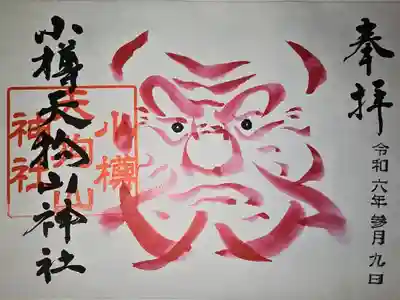 奉拝
令和六年參月九日
小樽天狗山神社
小樽
天狗山
神社